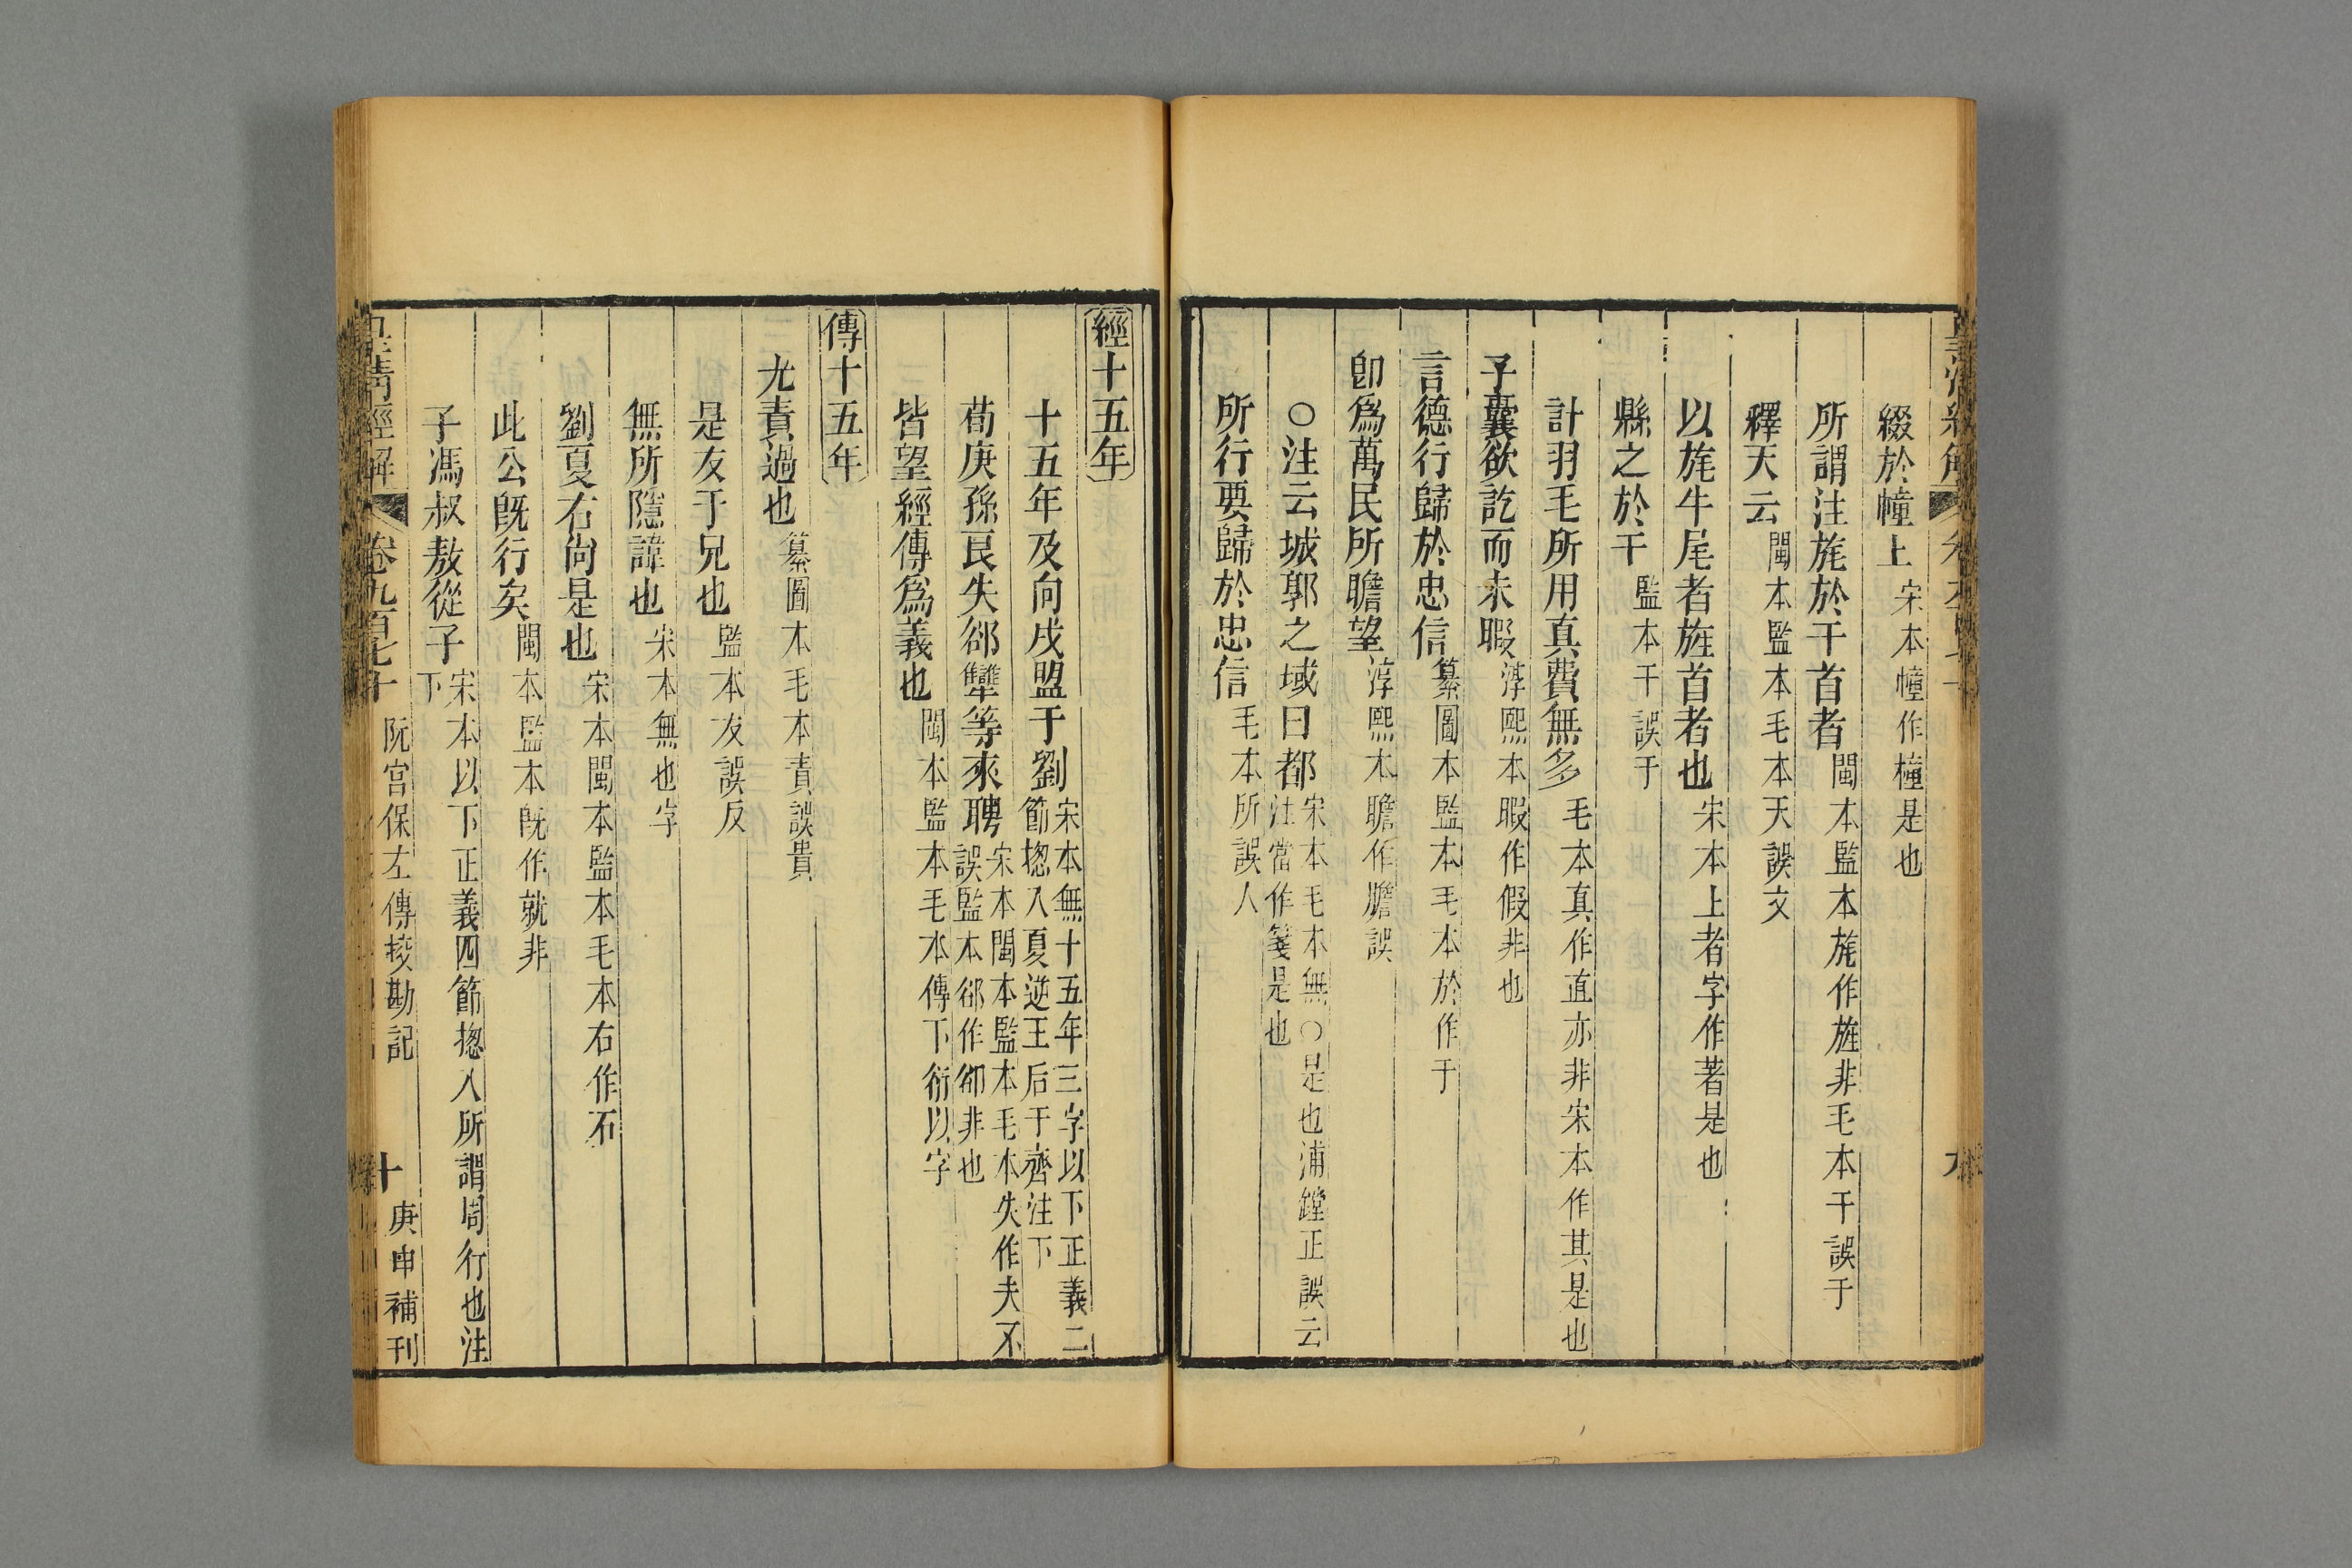 綴於幢上宋本幢作橦是也
所謂注旄於干首者閩本監本旄作旌非毛本干誤于
釋天云閩本監本毛本天誤文
以旄牛尾者旌首者也宋本上者字作著是也
縣之於干監本干誤于
計羽毛所用真費無多毛本真作直亦非宋本作其是也
子囊欲訖而未暇淳熙本暇作假非也
言德行歸於忠信纂圖本監本毛本於作于
卽爲萬民所瞻望淳熙本瞻作膽誤
○注云城郭之域曰都宋本毛本無○是也浦鏜正誤云
注當作箋是也
所行要歸於忠信毛本所誤人
經十五年
十五年及向戌盟于劉宋本無十五年三字以下正義二
節揔入夏逆王后于齊注下
荀庚孫良夫郤犫等來聘宋本閩本監本毛本失作夫不
誤監本郤作卻非也
皆望經傳爲義也閩本監本毛本傳下衍以字
傳十五年
尤責過也纂圖本毛本責誤貴
是友于兄也監本友誤反
無所隱諱也宋本無也字
劉夏右尙是也宋本閩本監本毛本右作石
此公旣行矣閩本監本旣作就非
子馮叔敖從子宋本以下正義四節揔入所謂周行也注
下
皇清經解 卷九百七十 阮宮保左傳挍勘記 十 庚申補刊